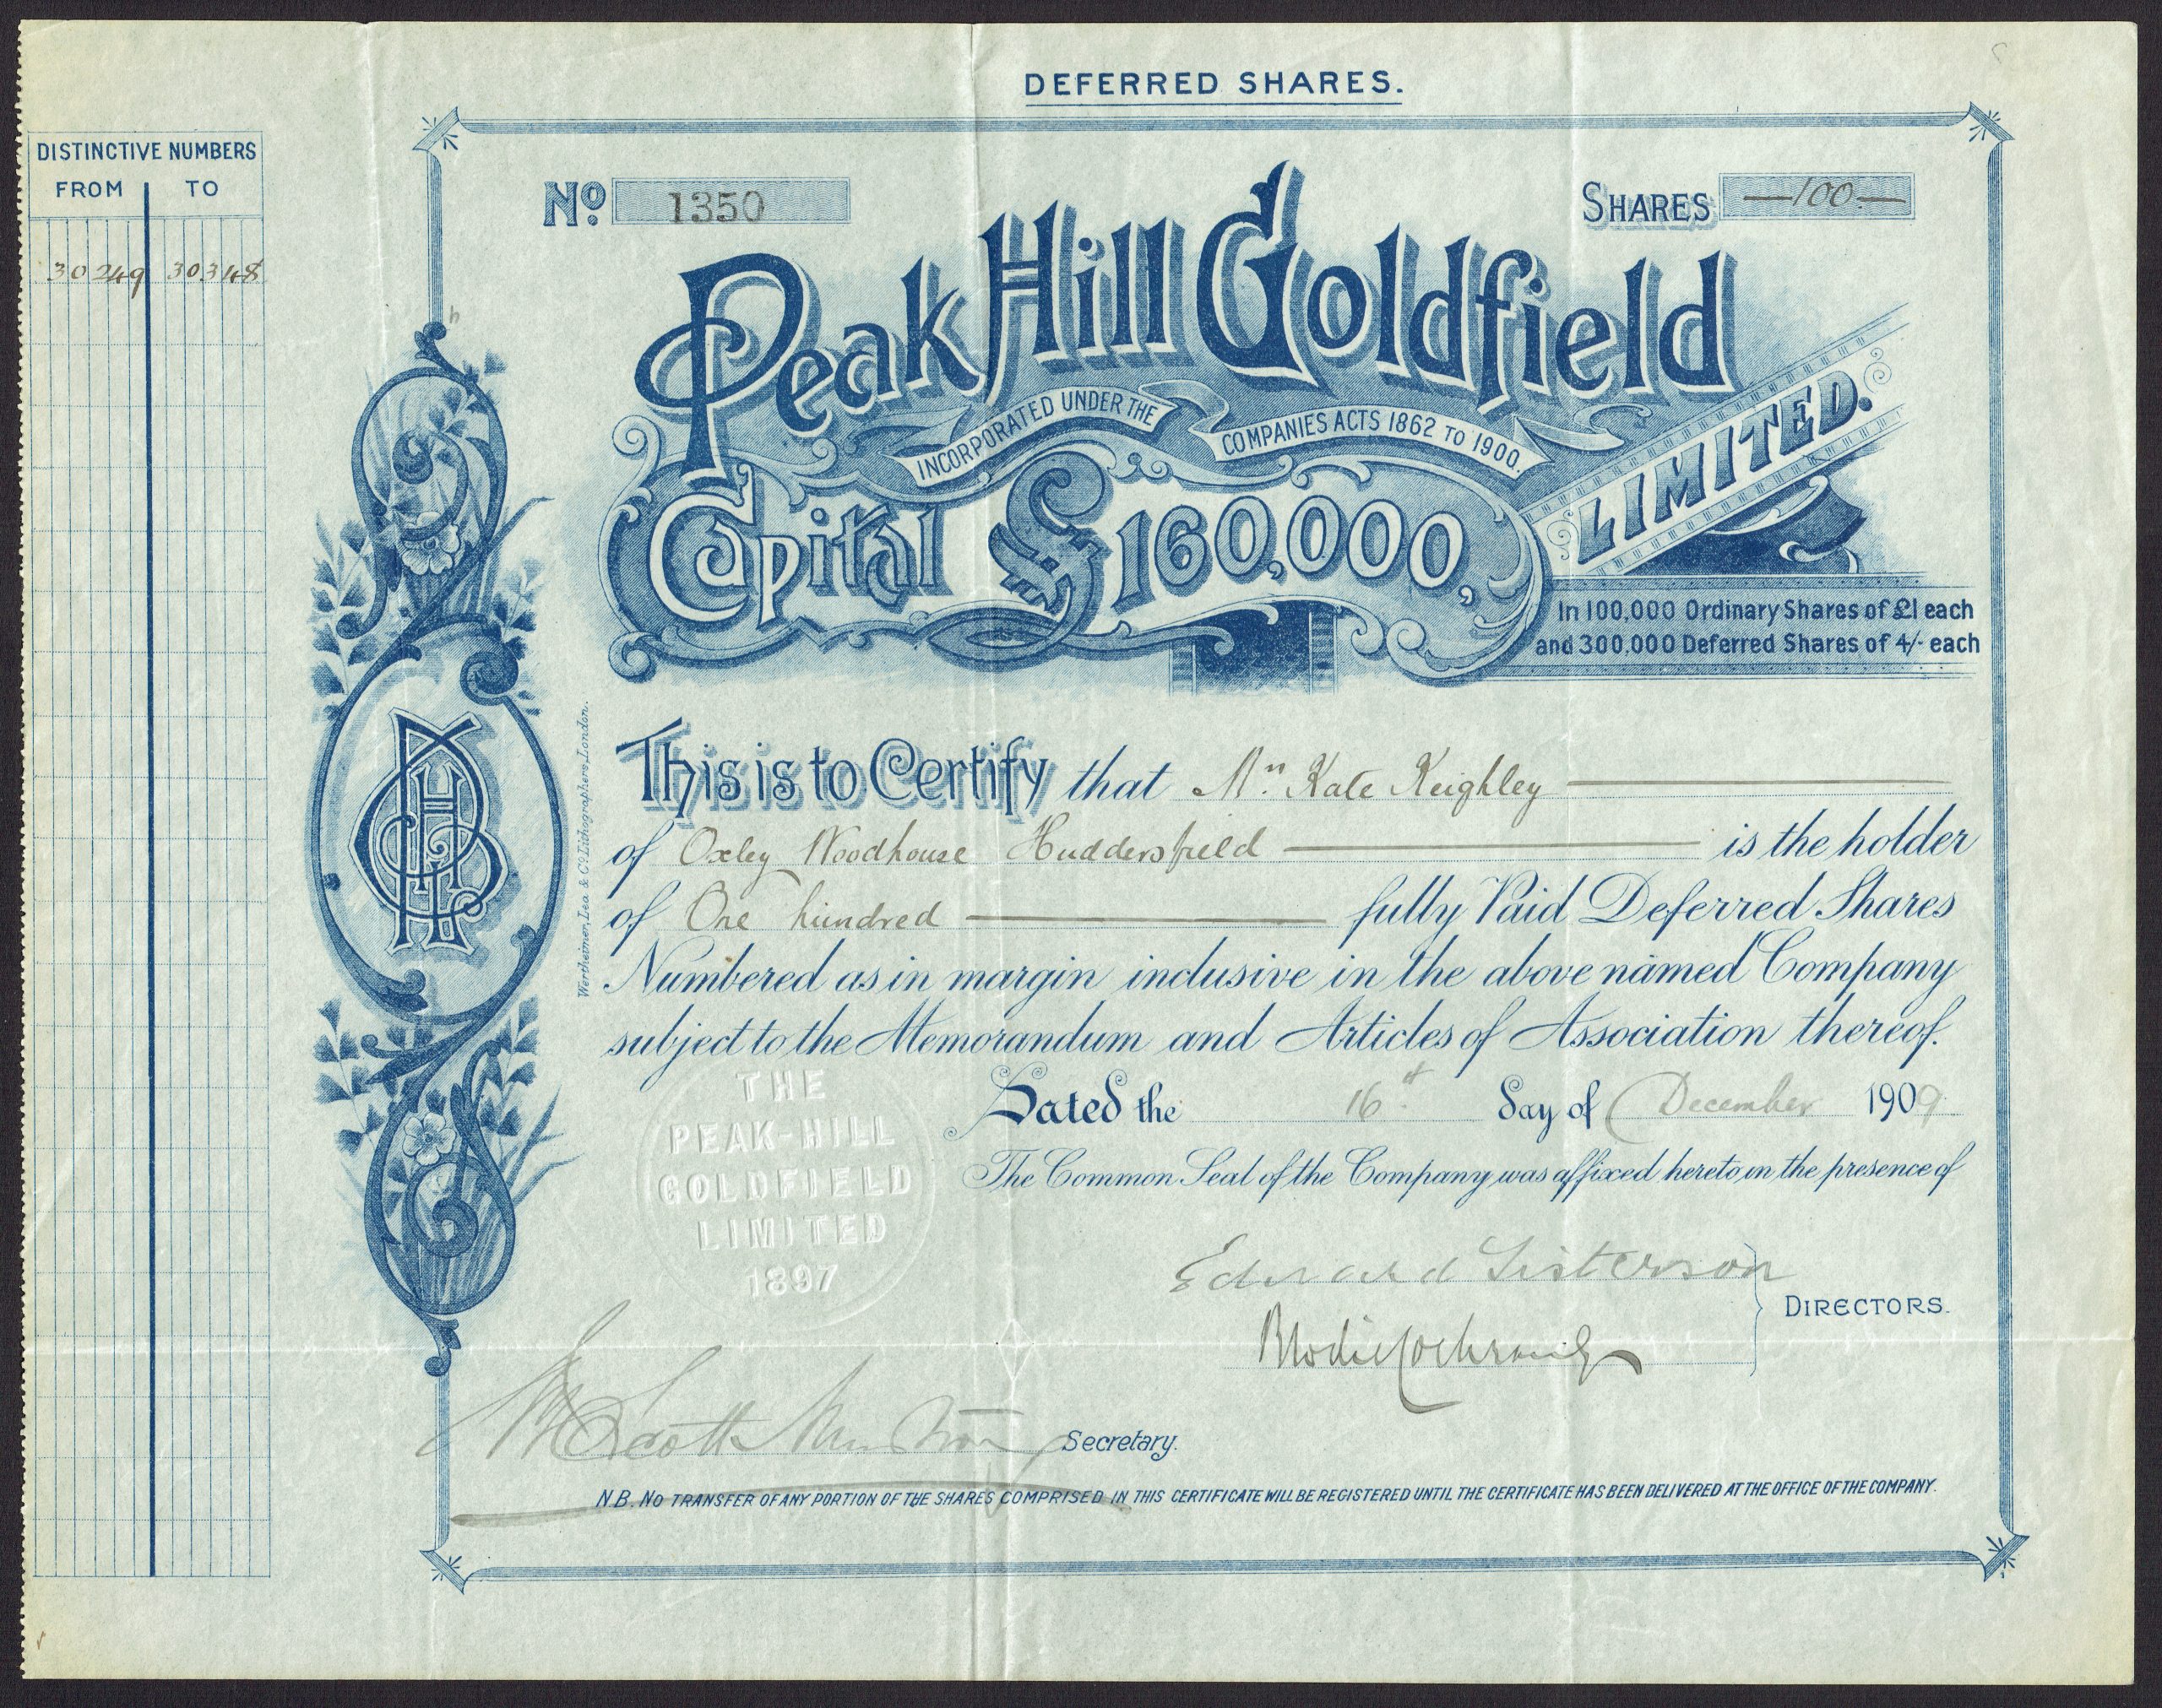 DEFERRED SHARES.
DISTINCTIVE NUMBERS
FROM TO
30249 30348
No. 1350
SHARES —100.—
Peak Hill Goldfield
LIMITED.
INCORPORATED UNDER THE COMPANIES ACTS 1862 TO 1900.
Capital £160,000,
In 100,000 Ordinary Shares of £1 each
and 300,000 Deferred Shares of 4/- each
This is to Certify that Mrs. Kate Keighley
of Oxley Woodhouse Huddersfield is the holder
of One hundred fully Paid Deferred Shares
Numbered as in margin inclusive in the above named Company
subject to the Memorandum and Articles of Association thereof.
Dated the 16th day of December 1909
The Common Seal of the Company was affixed hereto in the presence of
THE
PEAK-HILL
GOLDFIELD
LIMITED
1897
Edward Sisterson
Brodie Cochrane
DIRECTORS.
Scott Secretary.
N.B. NO TRANSFER OF ANY PORTION OF THE SHARES COMPRISED IN THIS CERTIFICATE WILL BE REGISTERED UNTIL THE CERTIFICATE HAS BEEN DELIVERED AT THE OFFICE OF THE COMPANY.
Wertheimer, Lea & Co. Lithographers, London.